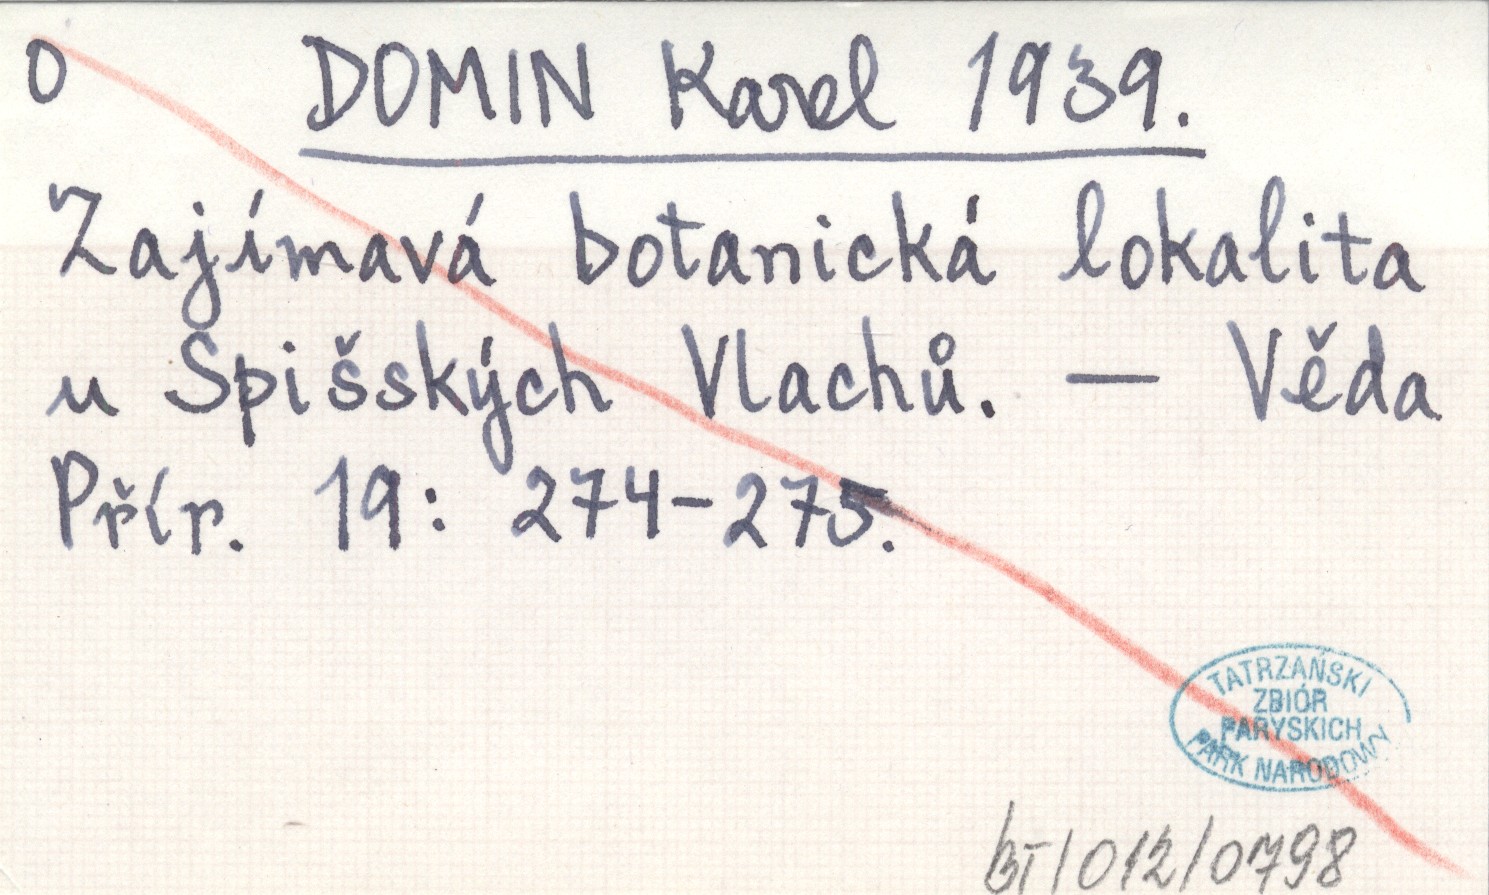 O DOMIN Karel 1939.
Zajímavá botanická lokalita
u Spišských Vlachů. — Věda
Přír. 19: 274-275.
TATRZAŃSKI
ZBIÓR
PARYSKICH
PARK NARODOWY
BT/012/0798